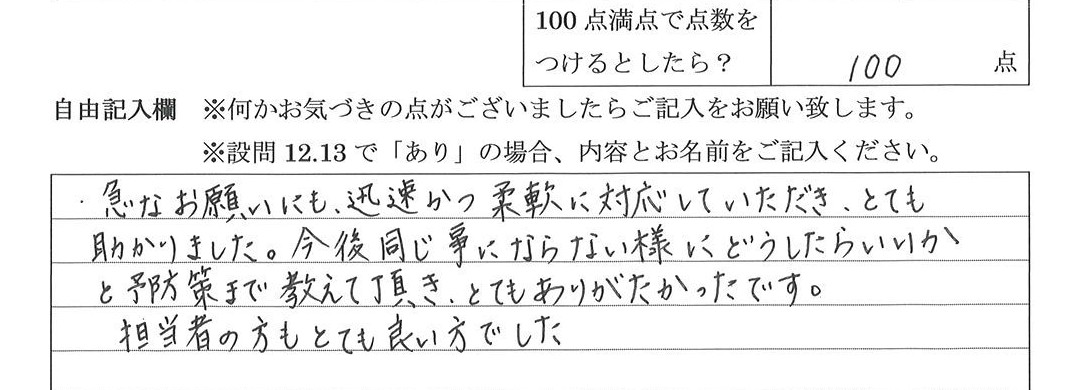 100 点満点で点数を
つけるとしたら？
100 点
自由記入欄 ※何かお気づきの点がございましたらご記入をお願い致します。
※設問 12.13 で「あり」の場合、内容とお名前をご記入ください。
・急なお願いにも、迅速かつ柔軟に対応していただき、とても
助かりました。今後同じ事にならない様にどうしたらいいか
と予防策まで教えて頂き、とてもありがたかったです。
担当者の方もとても良い方でした